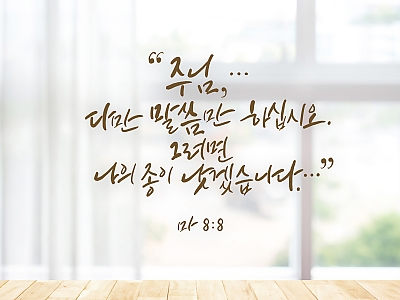 “주님, …
다만 말씀만 하십시오.
그러면
나의 종이 낫겠습니다.…”
마 8:8